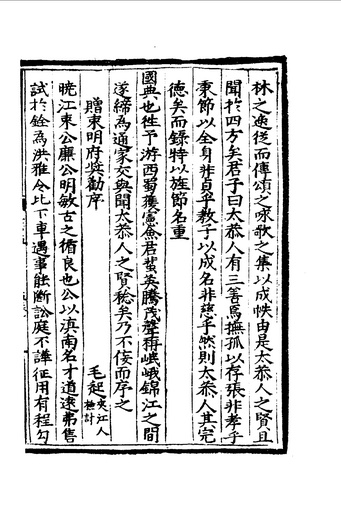 林之逸從而傳頌之咏歌之集以成帙由是太恭人之賢且
聞於四方矣君子曰太恭人有三善焉撫孤以存張非孝乎
秉節以全身非貞乎教子以成名非慈乎然則太恭人其完
德矣而錄特以旌節名重
國典也往予游西蜀獲寓僉君蜚英騰茂聲稱岷峨錦江之間
遂締為通家交與聞太恭人之賢稔矣乃不佞而序之
贈東明府奬勸序
毛起 夾江人 檢討
曉江東公廉公明敏古之循良也公以滇南名才道逺弗售
試於銓為洪雅令比下車遇事能斷訟庭不譁征用有程勾